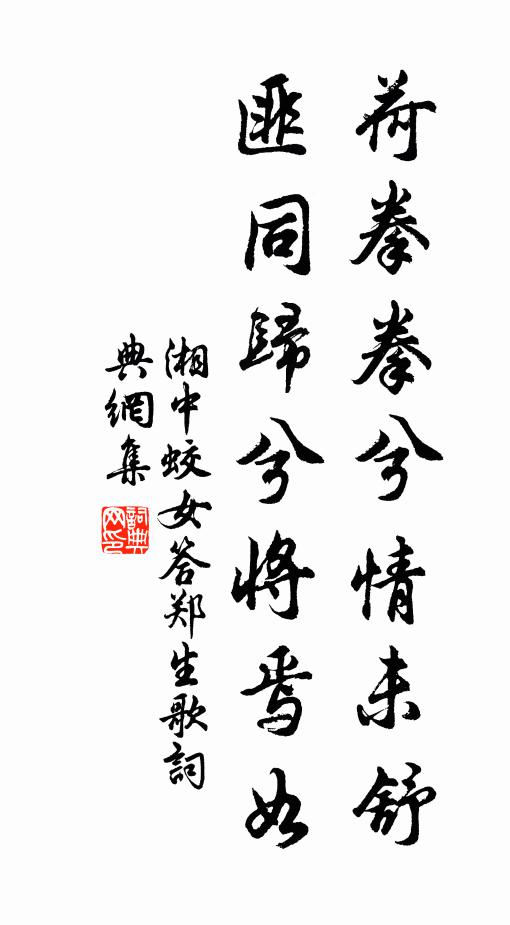 荷拳拳兮情未舒
匪同歸兮將焉如
湘中蛟女答郑生歌詞
典網集
詞典
网印